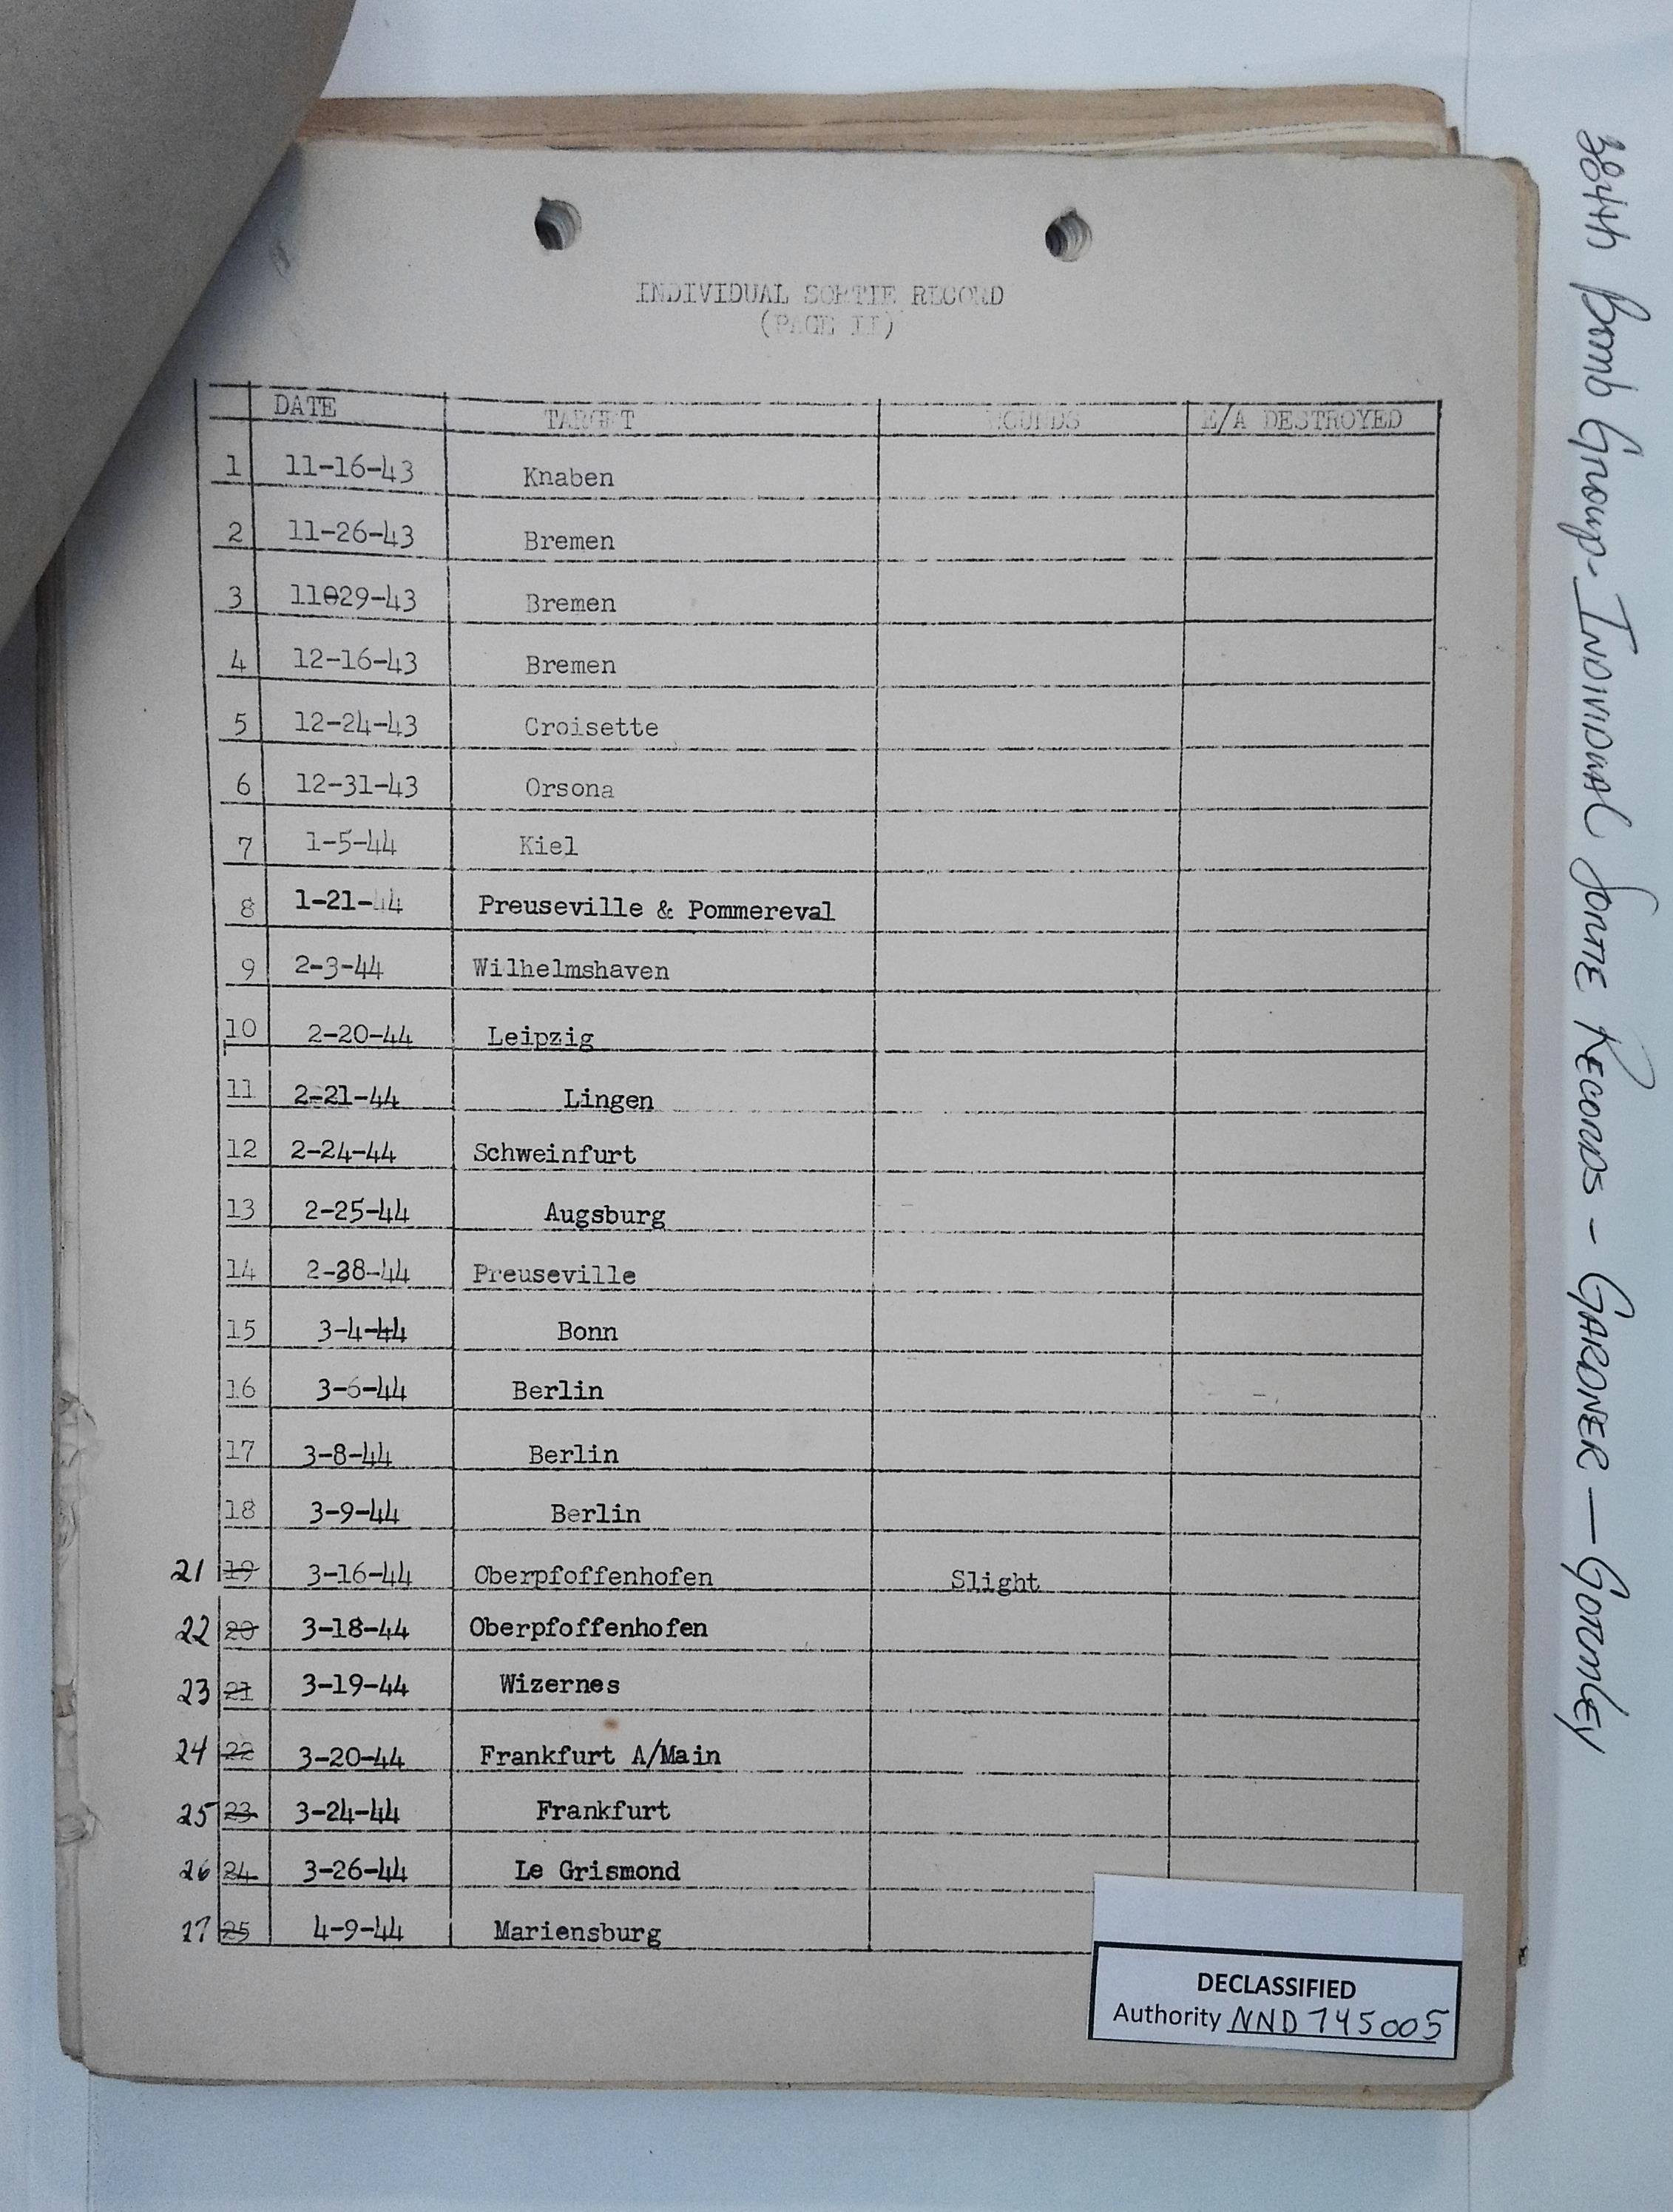 INDIVIDUAL SORTIE RECORD
(PAGE II)
DATE TARGET WOUNDS E/A DESTROYED
1 11-16-43 Knaben
2 11-26-43 Bremen
3 11029-43 Bremen
4 12-16-43 Bremen
5 12-24-43 Croisette
6 12-31-43 Orsona
7 1-5-44 Kiel
8 1-21-44 Preuseville & Pommereval
9 2-3-44 Wilhelmshaven
10 2-20-44 Leipzig
11 2-21-44 Lingen
12 2-24-44 Schweinfurt
13 2-25-44 Augsburg
14 2-28-44 Preuseville
15 3-4-44 Bonn
16 3-6-44 Berlin
17 3-8-44 Berlin
18 3-9-44 Berlin
21 19 3-16-44 Oberpfoffenhofen Slight
22 20 3-18-44 Oberpfoffenhofen
23 21 3-19-44 Wizernes
24 22 3-20-44 Frankfurt A/Main
25 23 3-24-44 Frankfurt
26 24 3-26-44 Le Grismond
27 25 4-9-44 Mariensburg
DECLASSIFIED
Authority NND 745005
384th Bomb Group - Individual Sortie Records - GARDNER - GORMLEY